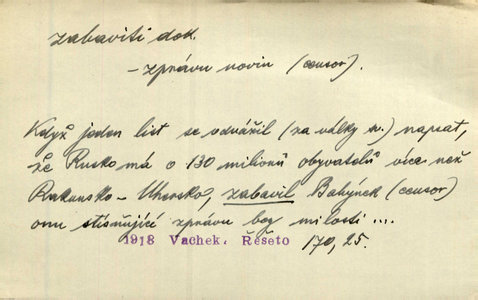 zabaviti dok.
– zprávu novin (censor).
Když jeden list se odvážil (za války sv.) napsat,
že Rusko má o 130 milionů obyvatelů více než
Rakousko – Uhersko, zabavil Babínek (censor)
onu stísňující zprávu bez milosti ...
1918 Vachek. Řešeto 170, 25.